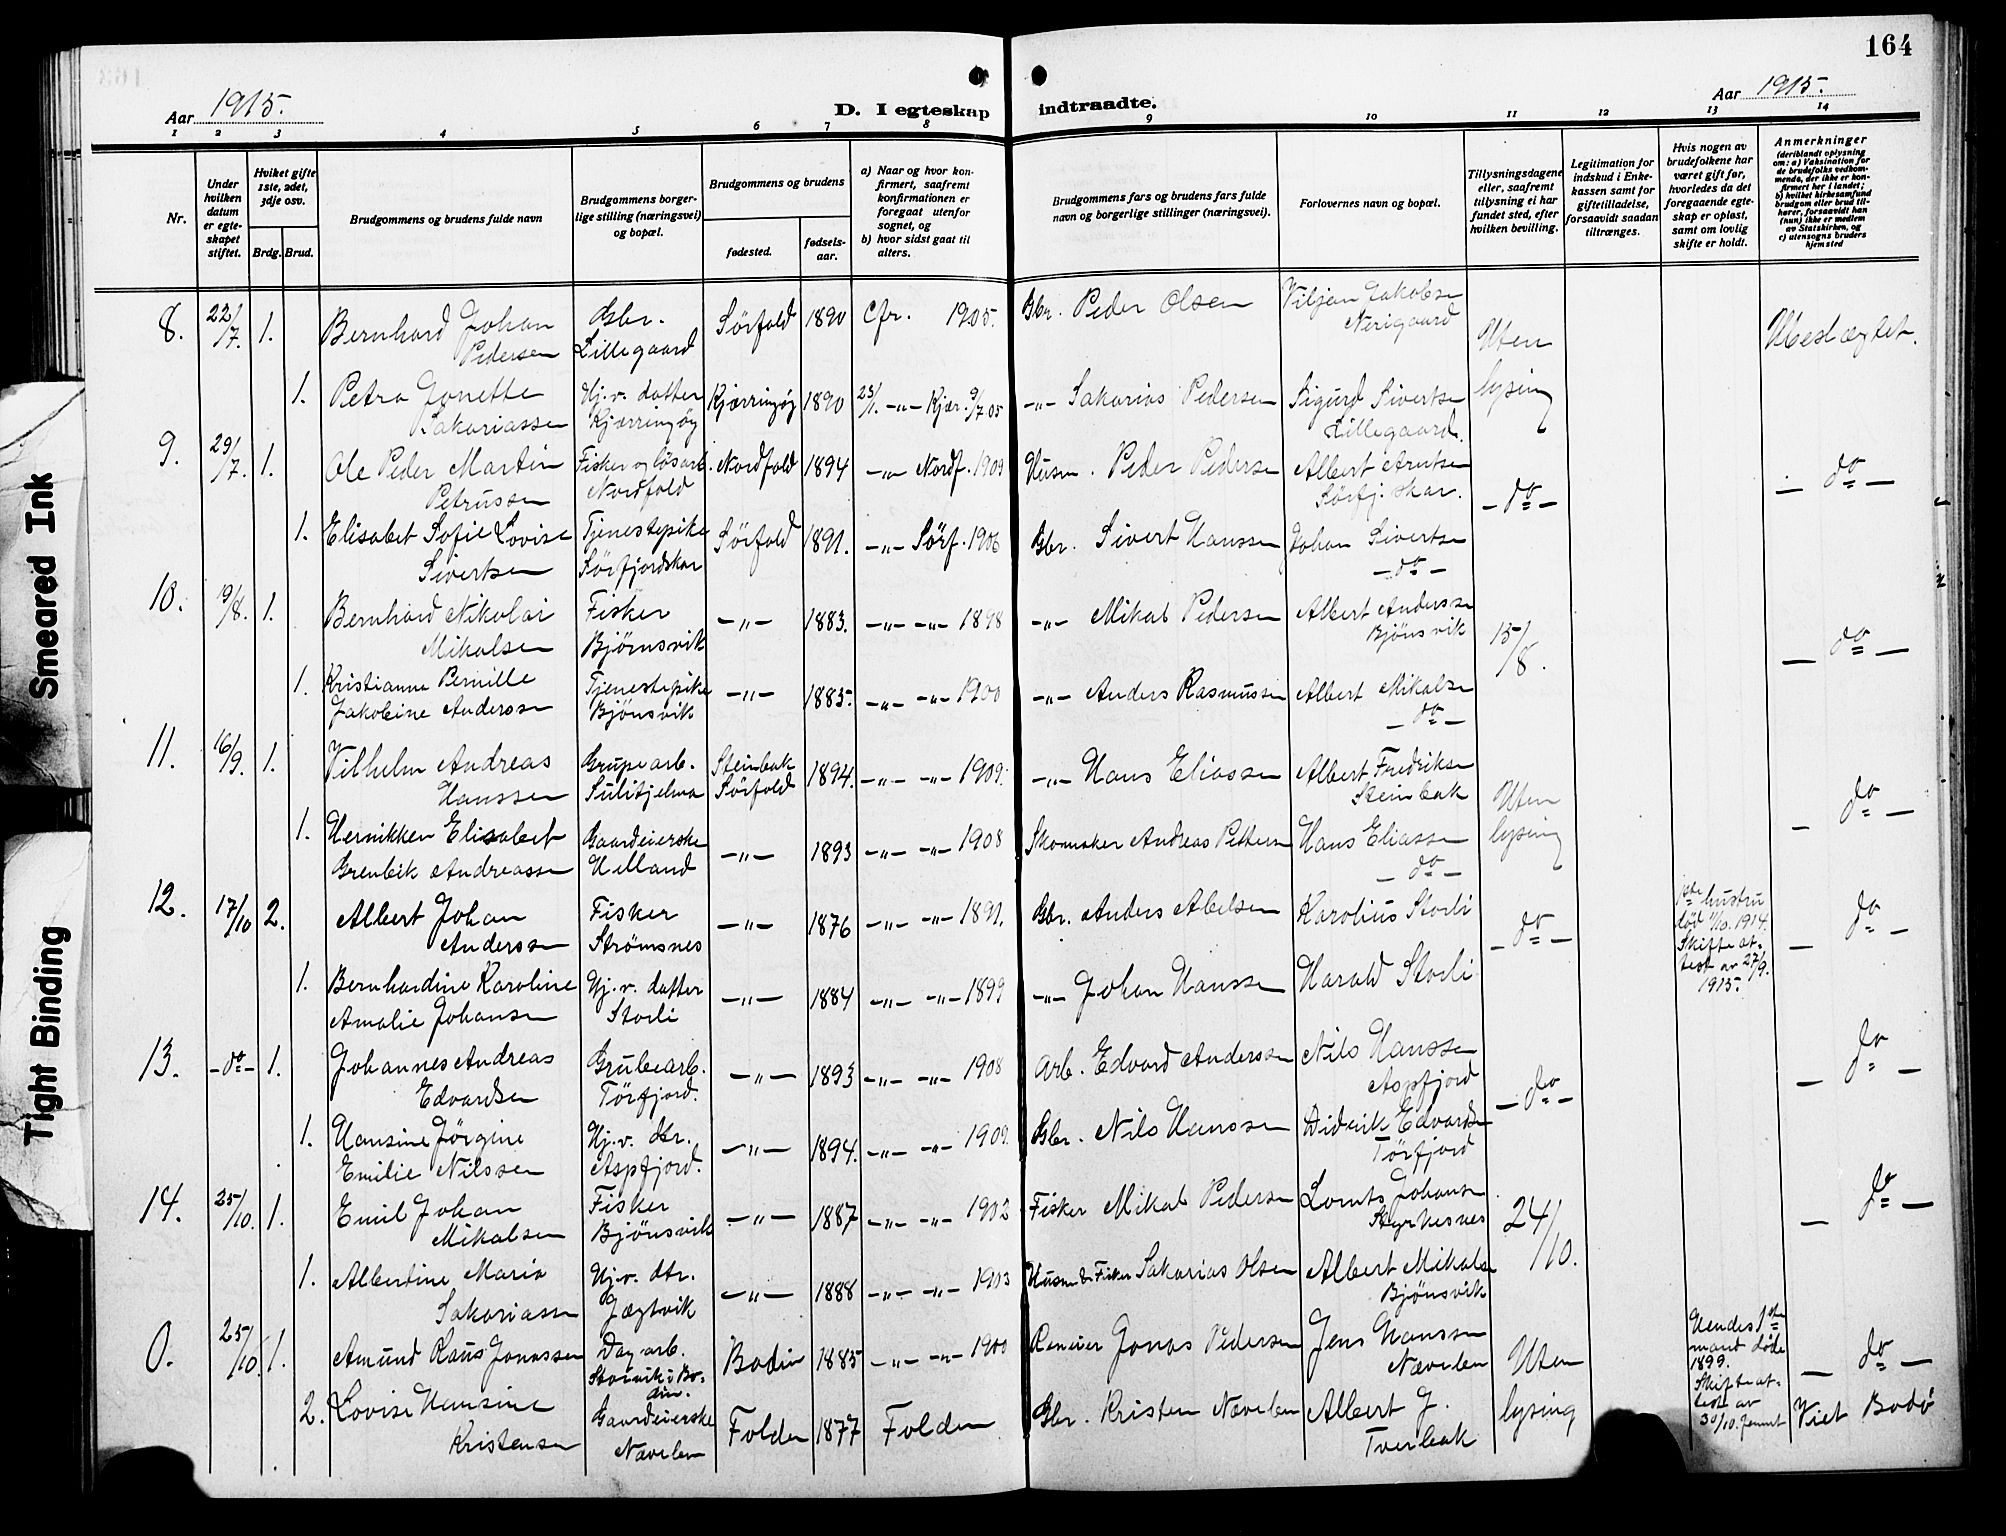 164
Aar 1915.
D. I egteskap indtraadte.
Aar 1915.
1 2 3 4 5 6 7 8 9 10 11 12 13 14
Nr.
Under hvilken datum er egteskapet stiftet.
Hviket gifte 1ste, 2det, 3dje osv.
Brdg. Brud.
Brudgommens og brudens fulde navn
Brudgommens borgerlige stilling (næringsvei) og bopæl.
Brudgommens og brudens
fødested.
fødselsaar.
a) Naar og hvor konfirmert, saafremt konfirmationen er foregaat utenfor sognet, og
b) hvor sidst gaat til alters.
Brudgommens fars og brudens fars fulde navn og borgerlige stillinger (næringsvei).
Forlovernes navn og bopæl.
Tillysningsdagene eller, saafremt tillysning ei har fundet sted, efter hvilken bevilling.
Legitimation for indskud i Enkekassen samt for giftetilladelse, forsaavidt saadan tiltrænges.
Hvis nogen av brudefolkene har været gift før, hvorledes da det foregaaende egteskap er opløst, samt om lovlig skifte er holdt.
Anmerkninger
(deriblandt oplysning om: a) Vaksination for de brudefolks vedkommende, der ikke er konfirmert her i landet; b) hvilket kirkesamfund brudgom eller brud tilhører, forsaavidt han (hun) ikke er medlem av Statskirken, og c) utensogns bruders hjemsted
8. 22/7. 1. Bernhard Johan Pedersen Gbr. Lillegaard Sörfold 1890 Cfr. 1905. Gbr. Peder Olsen Viljan Jakobsen Nerigaard Uten lysing Ubeslægtet.
1. Petra Jonette Sakariassen Hj.v. datter Kjærringöy Kjærringöy 1890 -"- Kjær. 9/7 05 -"- Sakarias Pedersen Sigurd Sivertsen Lillegaard.
9. 29/7. 1. Ole Peder Martin Petrussen Fisker og lösarb. Nordfold Nordfold 1894 -"- Nordf. 1909 Husm. Peder Pedersen Albert Arntsen Sörfj. skar. -do- -do-
1. Elisabet Sofie Lovise Sivertsen Tjenestepike Sörfjordskar Sörfold 1891. -"- Sörf. 1906 Gbr. Sivert Hanssen Johan Sivertsen -do-
10. 9/8. 1. Bernhard Nikolai Mikalsen Fisker Björnsvik -"- 1883. -"- -"- 1898 -"- Mikal Pedersen Albert Anderssen Bjönsvik 15/8. -do-
1. Kristianne Pernille Jakobine Anderssen Tjenestepike Bjönsvik -"- 1885. -"- -"- 1900 -"- Anders Rasmussen Albert Mikalsen -do-
11. 16/9. 1. Vilhelm Andreas Hanssen Grupearb. Sulitjelma Steinbak Sörfold 1894. -"- -"- 1909. -"- Hans Eliassen Albert Fredriksen Steinbak Uten lysing -do-
1. Henrikken Elisabet Grenbik Andreassen Gaardeierske Helland -"- 1893 -"- -"- 1908 Skomaker Andreas Pettersen Hans Eliassen -do-
12. 17/10 2. Albert Johan Anderssen Fisker Strömsnes -"- 1876 -"- -"- 1891. Gbr. Anders Abelsen Karolius Storli -do- 1ste hustru död 11/10. 1914. Skifteattest av 27/9. 1915. -do-
1. Bernhardine Karoline Amalie Johansen Hj.v. datter Storli -"- 1884 -"- -"- 1899 -"- Johan Hanssen Harald Storli
13. -do- 1. Johannes Andreas Edvardsen Grubearb. Törfjord. -"- 1893 -"- -"- 1908 Arb. Edvard Anderssen Nils Hanssen Aspfjord -do- -do-
1. Hansine Jörgine Emilie Nilssen Hj.v. dtr. Aspfjord. -"- 1894. -"- -"- 1909. Gbr. Nils Hanssen Didrik Edvardsen Törfjord
14. 25/10. 1. Emil Johan Mikalsen Fisker Bjönsvik -"- 1887 -"- -"- 1902 Fisker Mikal Pedersen Lornts Johansen Styrkesnes 24/10. -do-
1. Albertine Maria Sakariassen Hj.v. dtr. Jægtvik -"- 1888 -"- -"- 1903 Husm & Fisker Sakarias Olsen Albert Mikalsen Bjönsvik
0. 25/10. 1. Amund Raus Jonassen Dagarb. Störvik i Bodin. Bodin 1885 -"- -"- 1900 Jonas Pedersen Jens Hanssen Nævelen Uten lysing Hendes 1ste mand döde 1899. Skifteattest av 30/10. -do-
2. Lovise Hansine Kristensen Gaardeierske Nævelen Folden 1877 Folden Gbr. Kristen Nævelen Albert J. Tverbak Viet Bodö
Smeared Ink
Tight Binding